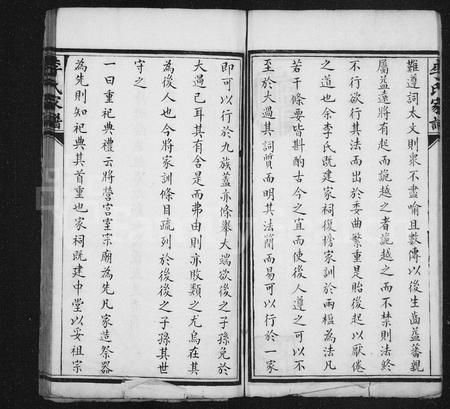 難遵詞太文則眾不盡喻且數傳以後生齒益蕃親
屬益遠將有起而詭越之者詭越之而不禁則法終
不行欲行其法而出於委曲繁重是貽後起以厭倦
之道也余李氏既建家祠復擔家訓於兩楹為法凡
若干條要皆斟酌古今之宜而使後人遵之可以
至於大過其詞質而明其法簡而易可以行於一家
即可以行於九族蓋亦條舉大端欲後之子孫免於
大過已耳其有舍是而弗由則亦敗類之尤烏在其
為後人也今將家訓條目疏列於後後之子孫其世
守之
一曰重祀典禮云將營宮室宗廟為先凡家造祭器
為先則知祀典其首重也家祠既建中堂以妥祖宗
李氏家譜